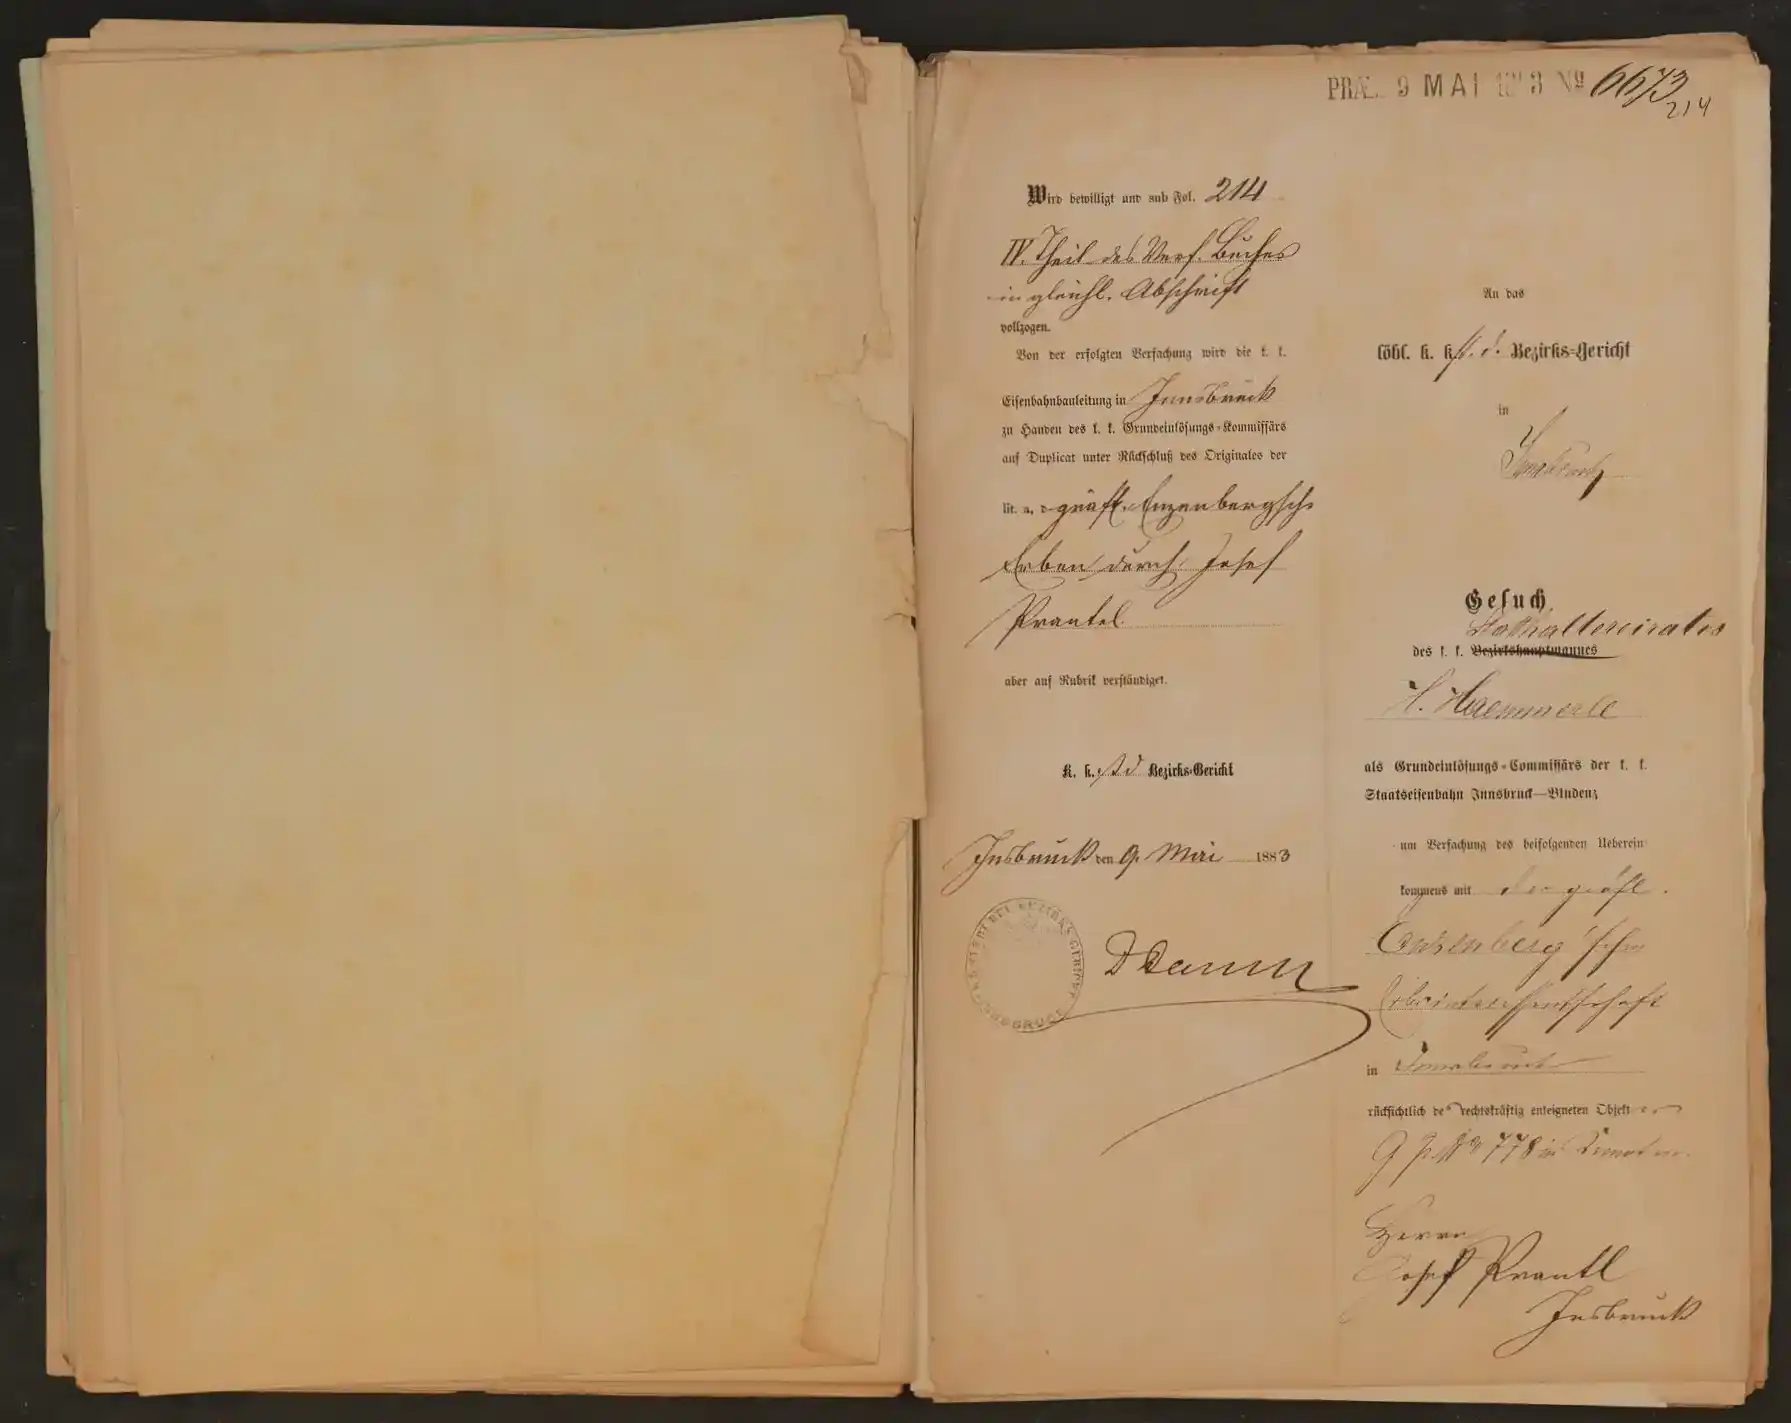 PRÆ. 9 MAI 1883 No 6673
214
Wird bewilligt und sub Fol. 214
IV. Theil des Verf. Buches
in gleichl. Abschrift
vollzogen.
Von der erfolgten Verfachung wird die k. k.
Eisenbahnbauleitung in Innsbruck
zu Handen des k. k. Grundeinlösungs-Kommissärs
auf Duplicat unter Rückschluß des Originales der
lit. a, d gräfl. Enzenbergsche
Erben durch Josef
Prantel
aber auf Rubrik verständiget.
K. k. st. d. Bezirks-Gericht
Innsbruck den 9. Mai 1883
An das
löbl. k. k. st. d. Bezirks-Gericht
in
Innsbruck
Gesuch
Statthaltereirates
des k. k. Bezirkshauptmannes
H. Haemmerle
als Grundeinlösungs-Commissärs der k. k.
Staatseisenbahn Innsbruck—Bludenz
um Verfachung des beifolgenden Ueberein
kommens mit der gräfl.
Enzenberg'schen
in Innsbruck
rücksichtlich des rechtskräftig enteigneten Objektes
G P No 778 in
Herrn
Josef Prantl
Innsbruck